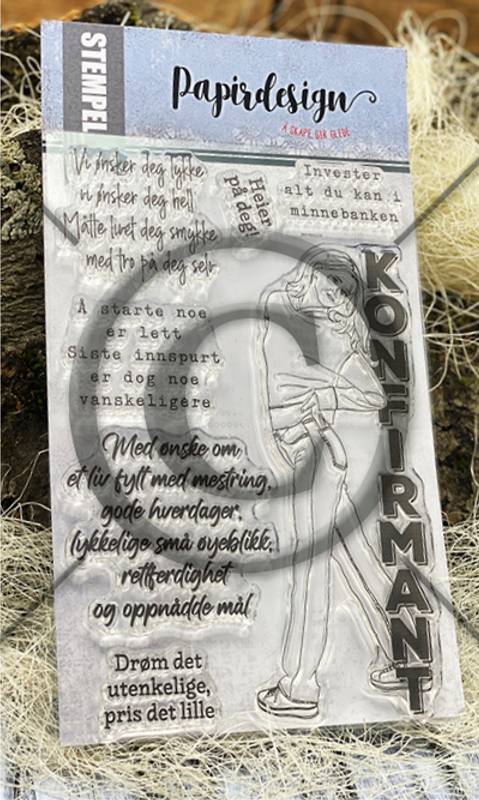 STEMPEL
Papirdesign
Å SKAPE GIR GLEDE
Vi ønsker deg lykke
vi ønsker deg hell
Måtte livet deg smykke
med tro på deg selv
Heier
på deg!
Invester
alt du kan i
minnebanken
Å starte noe
er lett
Siste innspurt
er dog noe
vanskeligere
Med ønske om
et liv fylt med mestring,
gode hverdager,
lykkelige små øyeblikk,
rettferdighet
og oppnådde mål
Drøm det
utenkelige,
pris det lille
KONFIRMANT
©